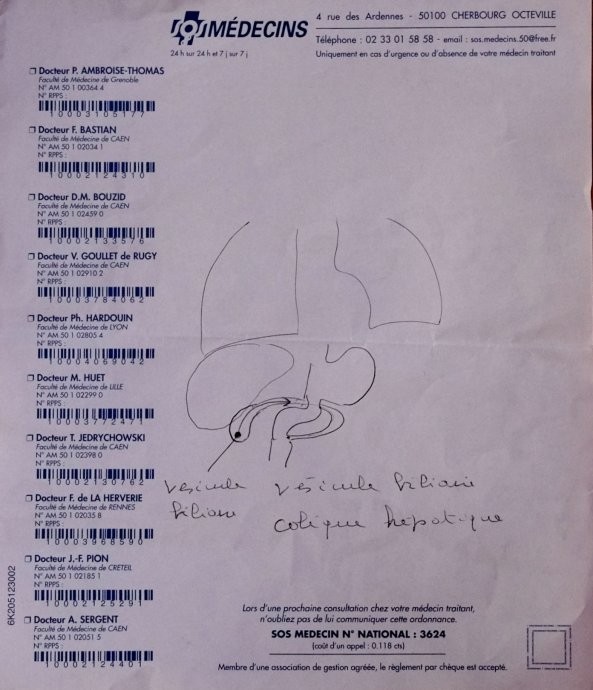 SOS MÉDECINS
24 h sur 24 h et 7 j sur 7 j
4 rue des Ardennes - 50100 CHERBOURG OCTEVILLE
Téléphone : 02 33 01 58 58 - email : sos.medecins.50@free.fr
Uniquement en cas d'urgence ou d'absence de votre médecin traitant
Docteur P. AMBROISE-THOMAS
Faculté de Médecine de Grenoble
N° AM 50 1 00364 4
N° RPPS :
10003105177
Docteur F. BASTIAN
Faculté de Médecine de CAEN
N° AM 50 1 02034 1
N° RPPS :
10002124310
Docteur D.M. BOUZID
Faculté de Médecine de CAEN
N° AM 50 1 02459 0
N° RPPS :
10002133576
Docteur V. GOULLET de RUGY
Faculté de Médecine de CAEN
N° AM 50 1 02910 2
N° RPPS :
10003784062
Docteur Ph. HARDOUIN
Faculté de Médecine de LYON
N° AM 50 1 02805 4
N° RPPS :
10004069042
Docteur M. HUET
Faculté de Médecine de LILLE
N° AM 50 1 02299 0
N° RPPS :
10003772471
Docteur T. JEDRYCHOWSKI
Faculté de Médecine de CAEN
N° AM 50 1 02398 0
N° RPPS :
10002130762
Docteur F. de LA HERVERIE
Faculté de Médecine de RENNES
N° AM 50 1 02035 8
N° RPPS :
10003968590
Docteur J.-F. PION
Faculté de Médecine de CRETEIL
N° AM 50 1 02185 1
N° RPPS :
10002125291
Docteur A. SERGENT
Faculté de Médecine de CAEN
N° AM 50 1 02051 5
N° RPPS :
10002124401
6K205123002
vésicule
biliaire
vésicule biliaire
colique hépatique
Lors d'une prochaine consultation chez votre médecin traitant,
n'oubliez pas de lui communiquer cette ordonnance.
SOS MEDECIN N° NATIONAL : 3624
(coût d'un appel : 0.118 cts)
Membre d'une association de gestion agréée, le règlement par chèque est accepté.